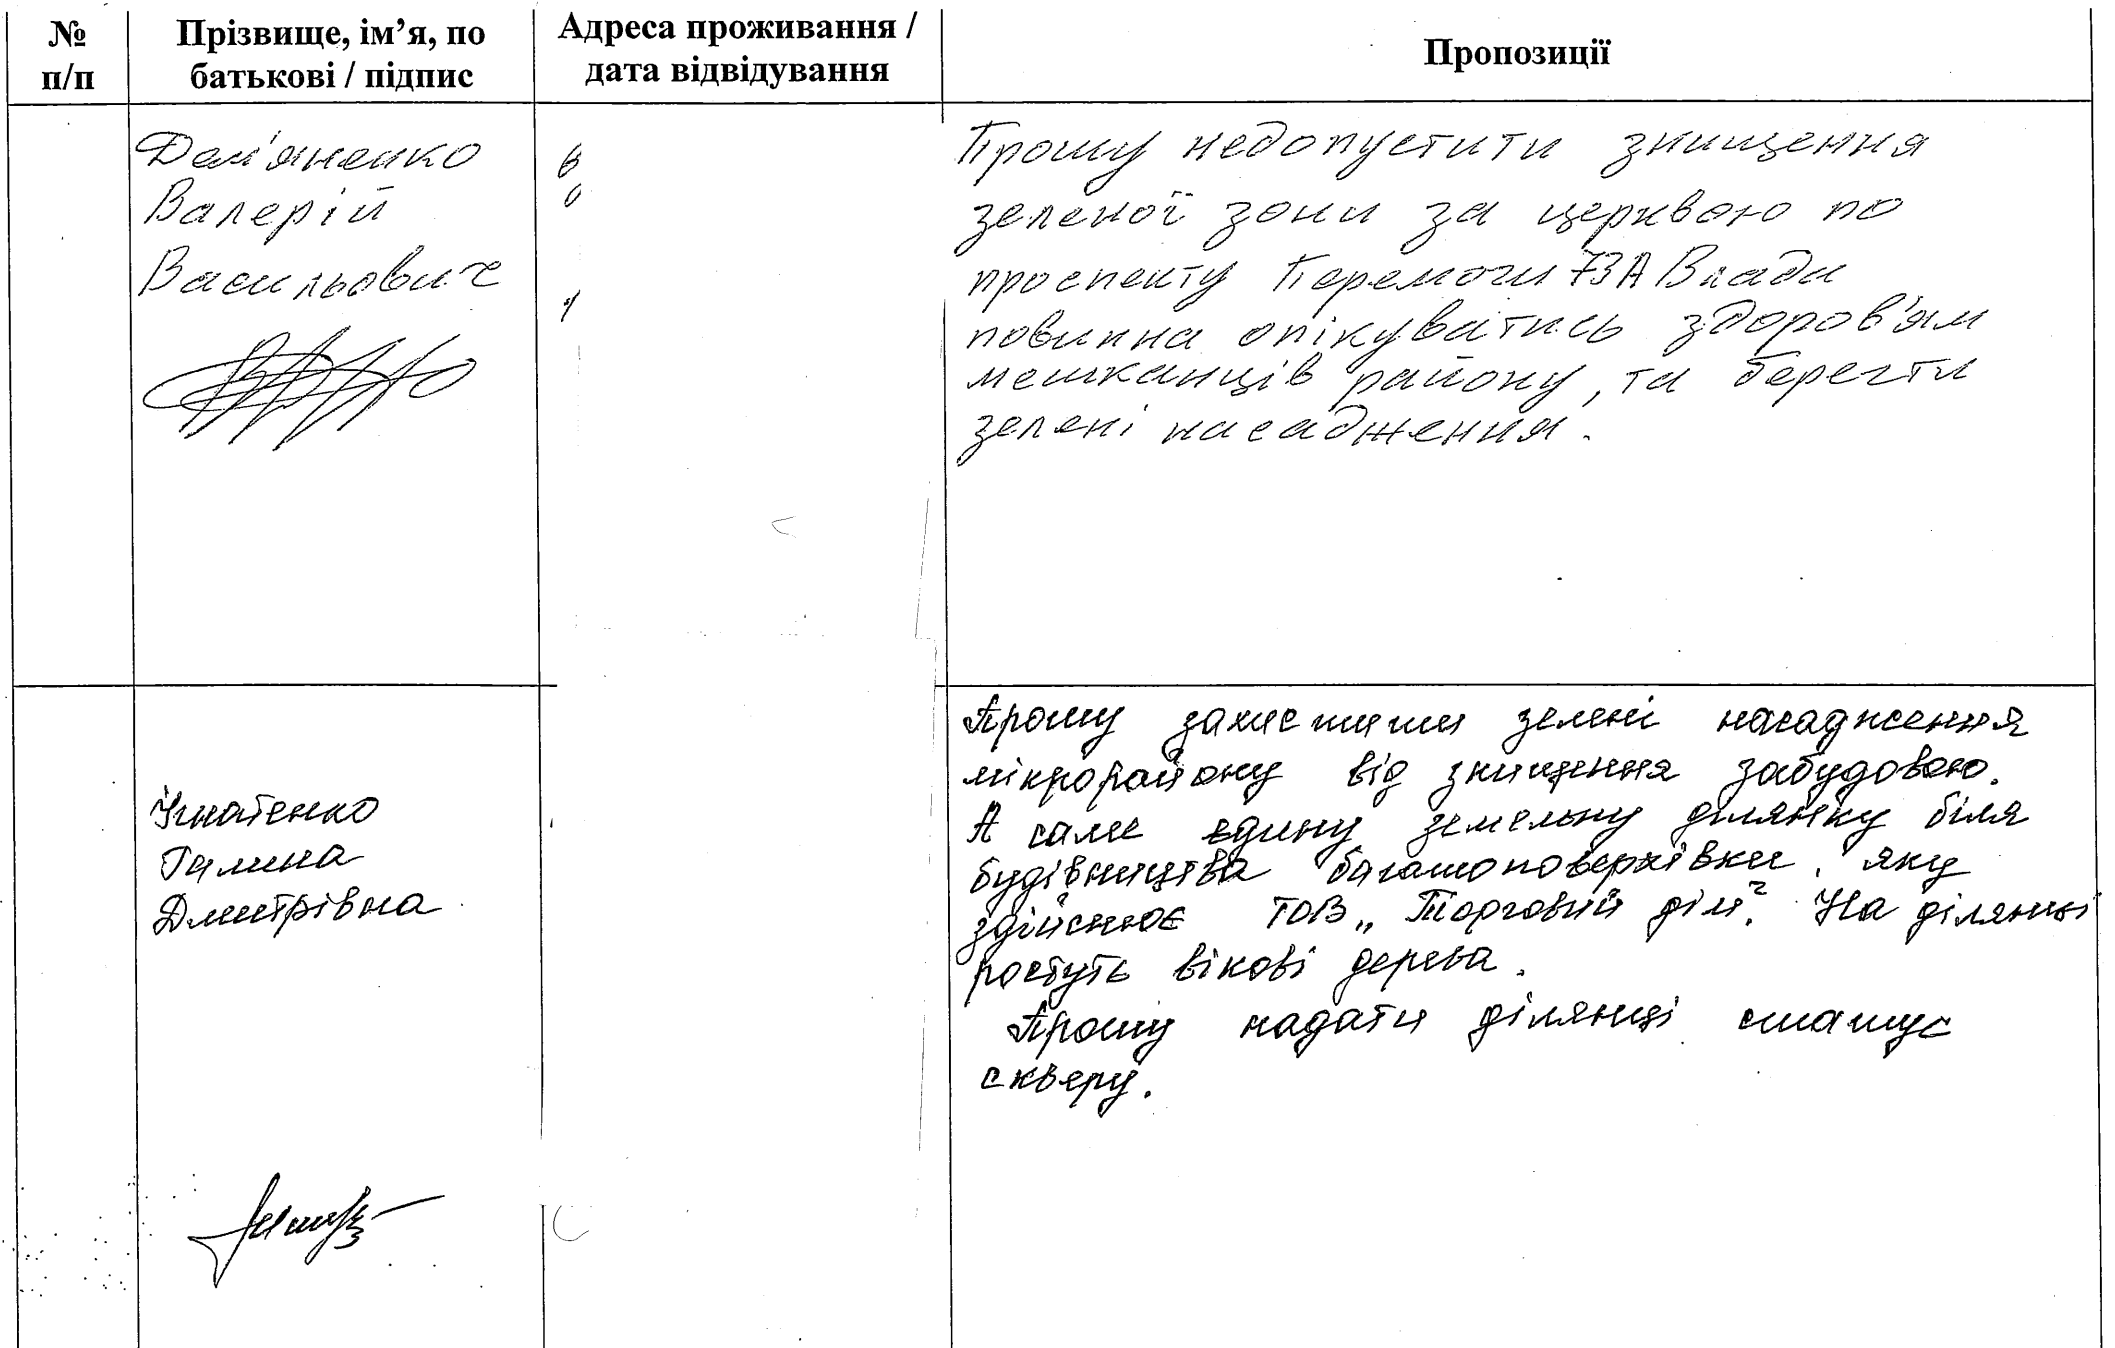 № п/п
Прізвище, ім’я, по батькові / підпис
Адреса проживання / дата відвідування
Пропозиції
Дем'яненко
Валерій
Васильович
Прошу недопустити знищення
зеленої зони за церквою по
проспекту Перемоги 73А Влада
повинна опікуватись здоров'ям
мешканців району, та берегти
зелені насадження.
Ігнатенко
Галина
Дмитрівна
Прошу захистити зелені насадження
мікрорайону від знищення забудовою.
А саме єдину земельну ділянку біля
будівництва багатоповерхівки, яку
здійснює ТОВ „Торговий дім". На ділянці
ростуть вікові дерева.
Прошу надати ділянці статус
скверу.